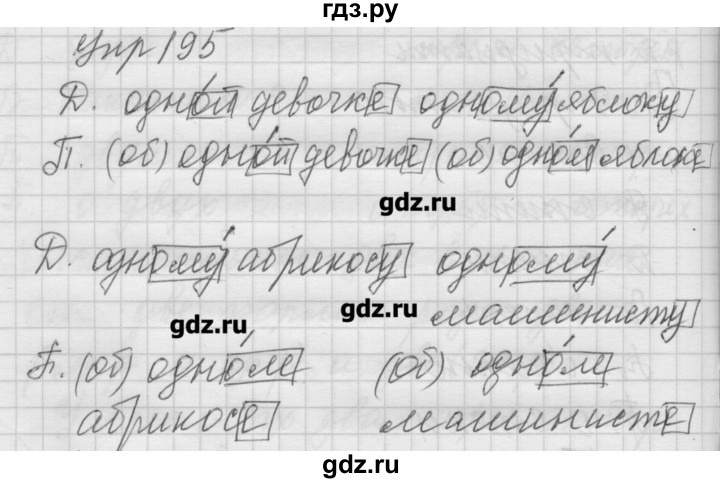 гдз.ру
Упр 195
Д. одно́й девочке одному́ яблоку
П. (об) одно́й девочке (об) одно́м яблоке
gdz.ru
Д. одному́ абрикосу одному́
gdz.ru gdz.ru
машинисту
П. (об) одно́м (об) одно́м
абрикосе машинисте
gdz.ru